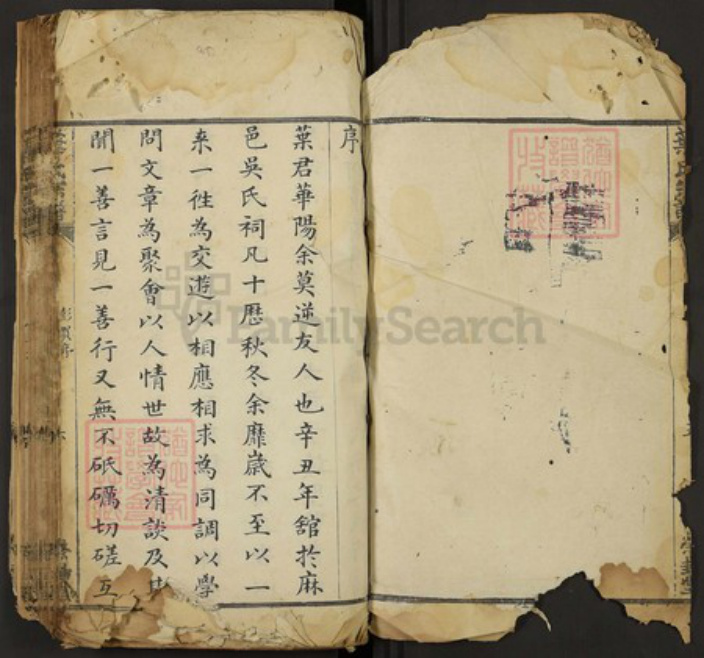 序
葉君華陽余莫逆友人也辛丑年舘扵麻
邑吳氏祠凡十歷秋冬余靡歲不至以一
来一徃為交遊以相應相求為同調以學
問文章為聚會以人情世故為清談及其
聞一善言見一善行又無不砥礪切磋互
FamilySearch